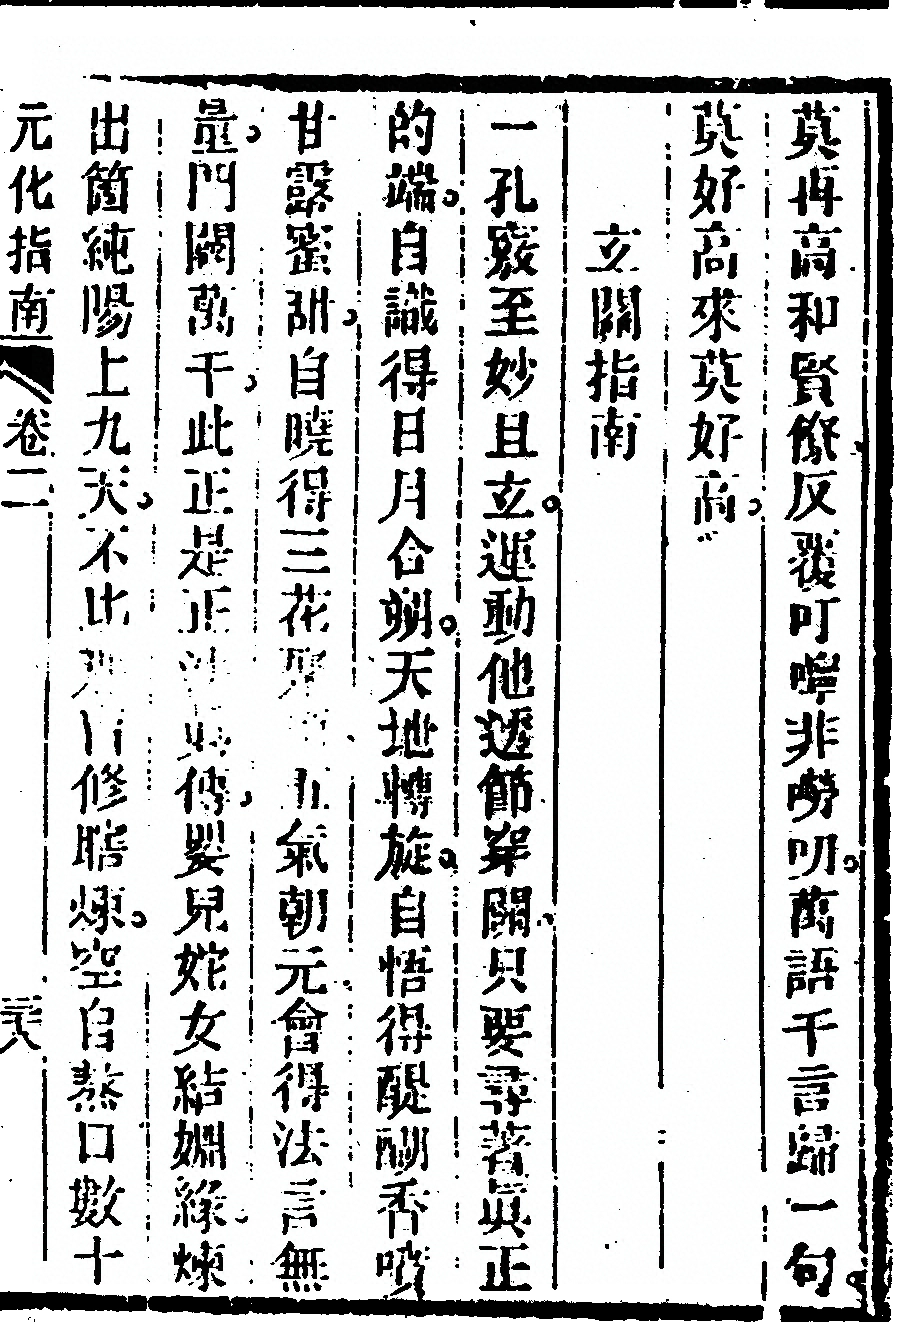 莫再高和賢僚反覆叮嚀非嘮叨。萬語千言歸一句。
莫好高來莫好高。
玄關指南
一孔竅至妙且玄。運動他透節穿關。只要尋著眞正
的端。自識得日月合朔。天地轉旋。自悟得醍醐香噴
甘露蜜甜。自曉得三花聚 五氣朝元會得法言無
量。門關萬千。此正是正法 傳。嬰兒姹女結姻緣。煉
出箇純陽上九天。不比 修瞎煉。空自熬口數十
元化指南 卷二 三十八